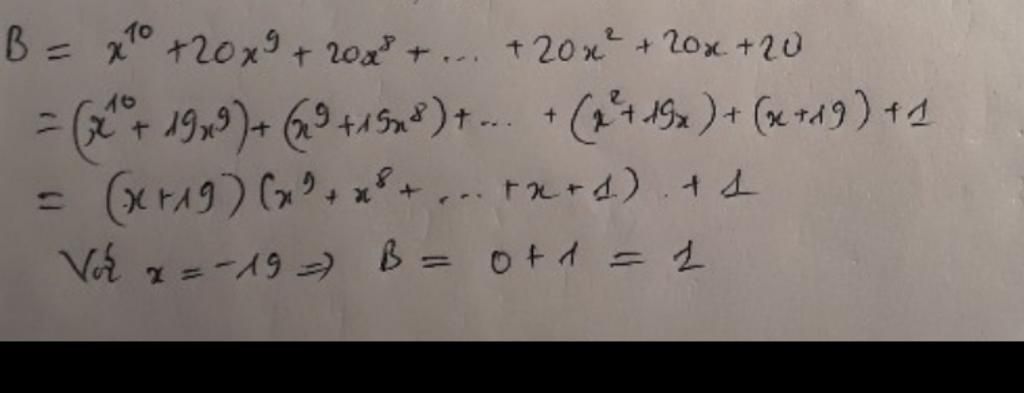 B = x¹⁰ + 20x⁹ + 20x⁸ + ... + 20x² + 20x + 20
= (x¹⁰ + 19x⁹) + (x⁹ + 19x⁸) + ... + (x² + 19x) + (x + 19) + 1
= (x + 19) (x⁹ + x⁸ + ... + x + 1) + 1
Với x = -19 => B = 0 + 1 = 1